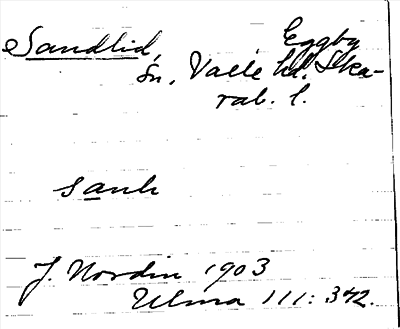 Sandlid, Eggby
sn, Valle hd. Ska-
rab. l.
sanli
J. Nordin 1903
Ulma 111: 342.